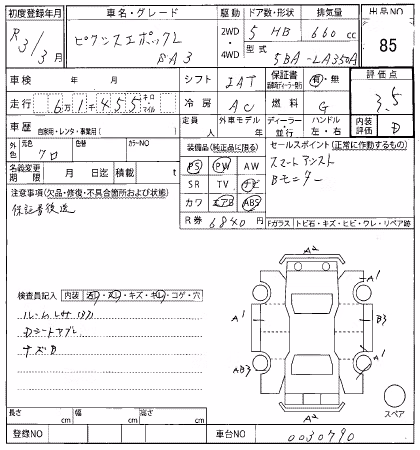 初度登録年月 車名・グレード 駆動 ドア数・形状 排気量 出品NO
R3/3月 2WD・4WD 5 HB 660 cc 85
型式 5BA-LA350A
SA3
車検 年 月 シフト IAT 保証書 有・無 評価点
走行 6万1千455 キロ・マイル 冷房 AC 燃料 G 3.5
車歴 自家用・レンタ・事業用( ) 定員 人 外車モデル 年 ディーラー 並行 ハンドル 左・右 内装評価 D
外色 元色 クロ 色替 カラーNO
装備品(純正品に限る) セールスポイント(正常に作動するもの)
PS PW AW スマートアシスト
名義変更期限 月 日迄 積載 t
SR TV ナビ Bモニター
注意事項(欠品・修復・不具合箇所および状態)
カワ エアB ABS
保証書後送
R券 6840円
Fガラス トビ石・キズ・ヒビ・ワレ・リペア跡
検査員記入 内装 ・キズ・ ・コゲ・穴
A2
A1
A1 A1
B3
A2 A1
A2
スペア
長さ cm 幅 cm 高さ cm
登録NO 車台NO 0030790